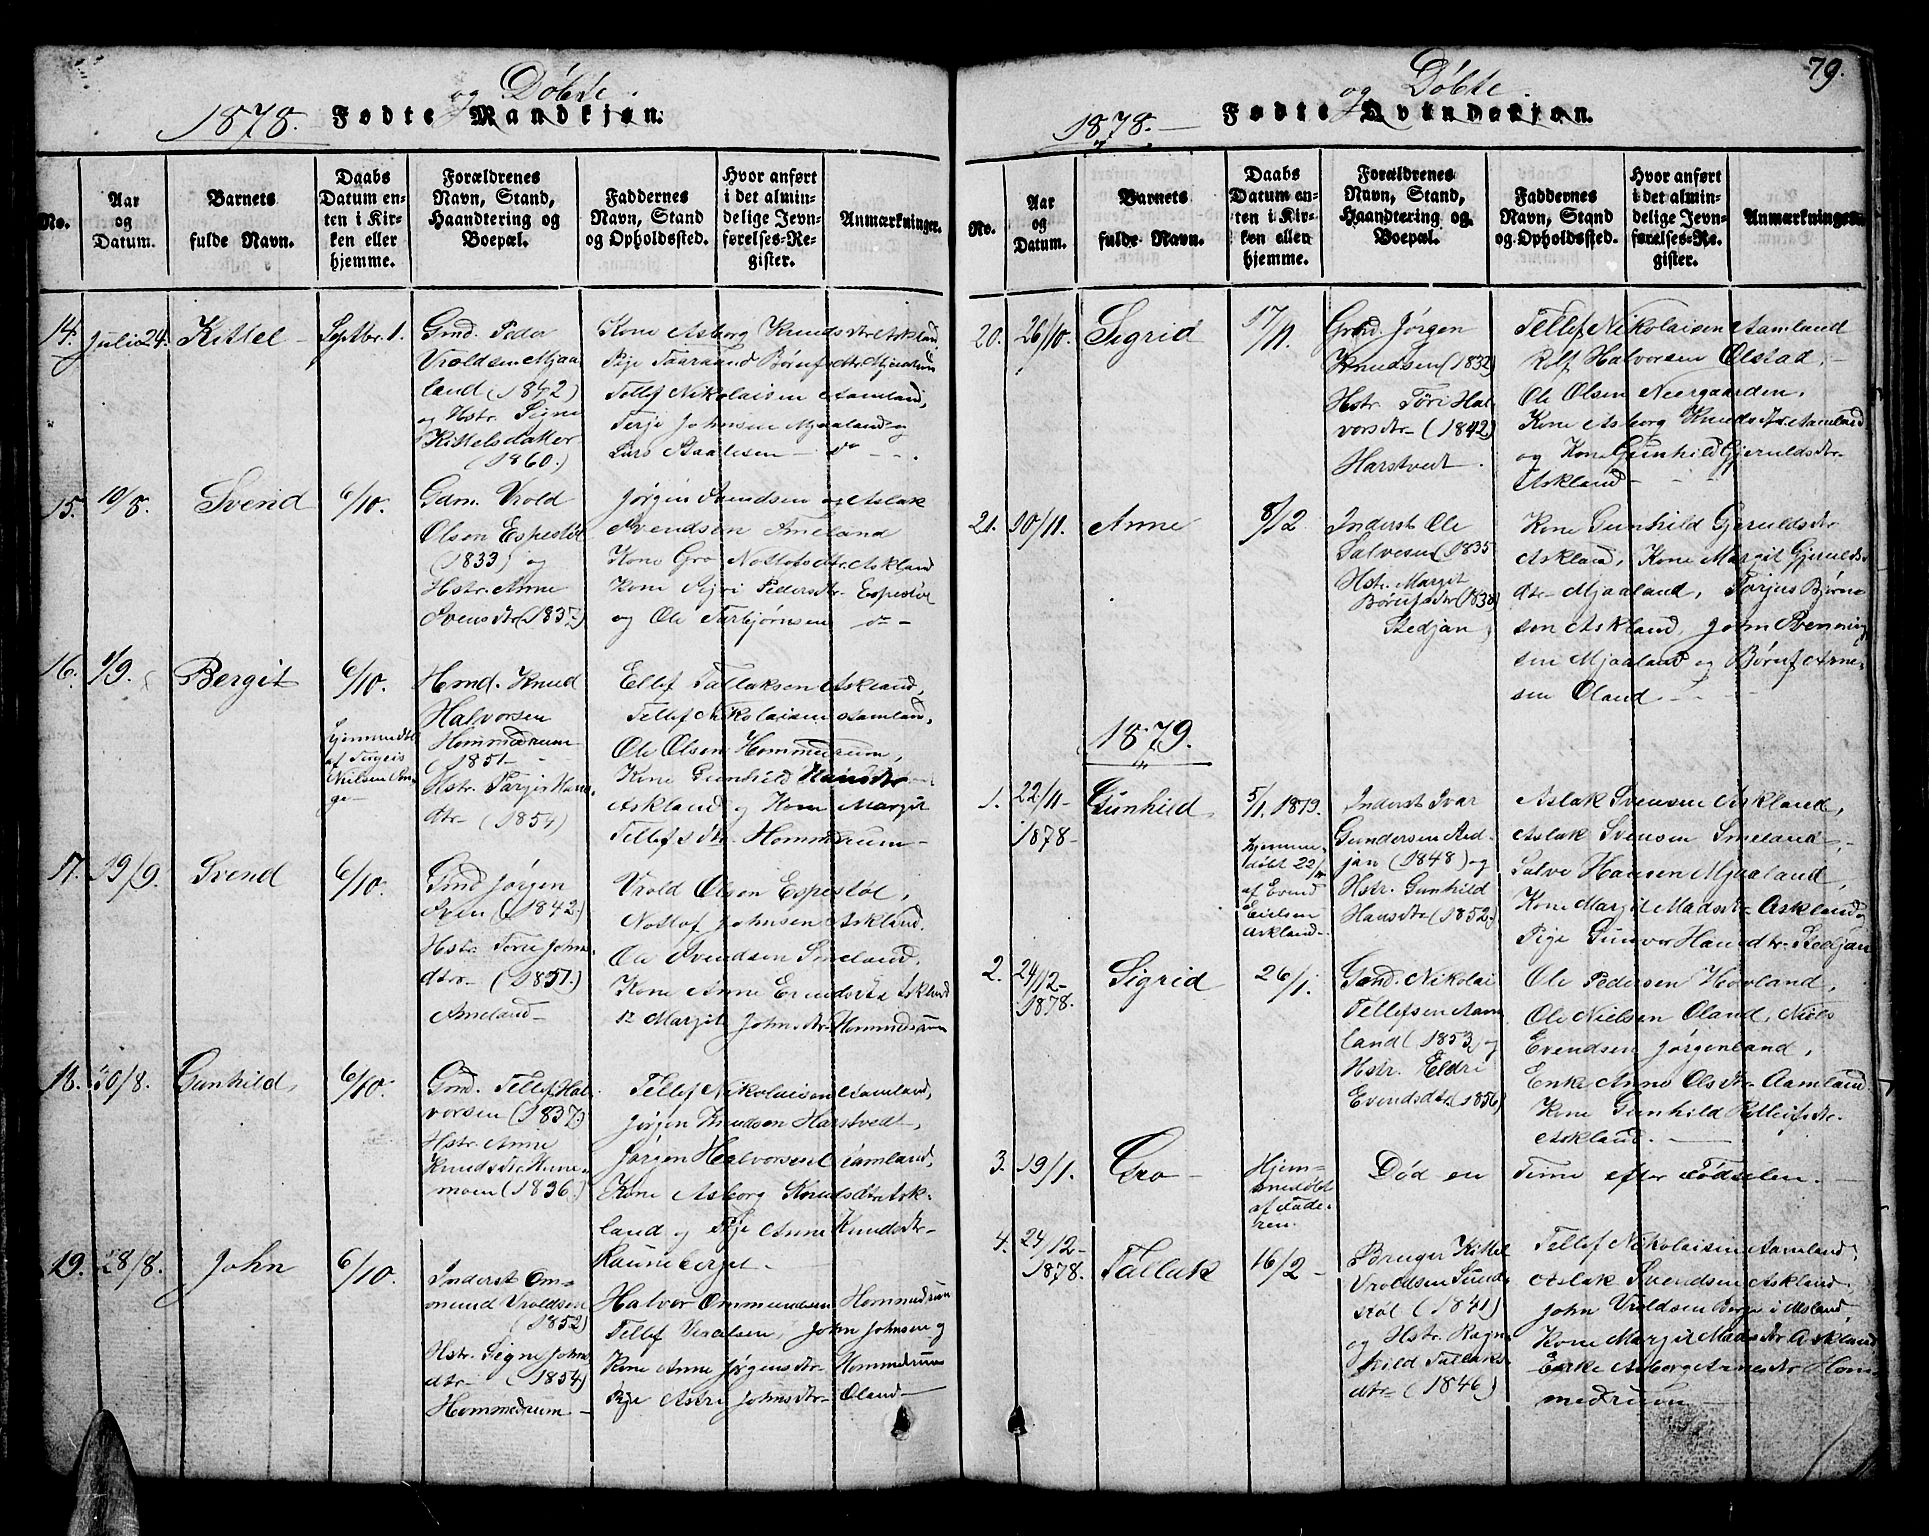 og Døbte.
1878. Fødte Mandkjøn.
No.
Aar og Datum.
Barnets fulde Navn.
Daabs Datum enten i Kirken eller hjemme.
Forældrenes Navn, Stand, Haandtering og Boepæl.
Faddernes Navn, Stand og Opholdssted.
Hvor anført i det almindelige Jevnførelses-Register.
Anmærkninger.
14. Julii 24. Kittel Septbr. 1.
Gmd. Peder
Vroldsen Mjaa-
land (1842)
og Hstr. Signe
Kittelsdatter
(1860.)
Kone Asborg Knudsdtr Askland
Pige Taaraand Børufsdtr. Mjaaland
Tellef Nikolaisen Aamland,
Terje Johnsen Mjaaland og
Lars Aadnesen — do —.
15. 10/8. Svend 6/10.
Gdm. Vrold
Olsen Espestøl
(1833) og
Hstr. Anne
Svensdtr (1837)
Jørgen Svendsen og Aslak
Svendsen Ameland
Kone Gro Notlofsdtr. Askland
Kone Sigri Pedersdtr. Espestøl
og Ole Torbjørnsen do —
16. 1/9. Bergit 6/10.
hjemmedøbt
af Torgeis
Nielsen
Hmd. Knud
Halvorsen
Hommedrum
(1851—
Hstr. Torgis Hans-
dtr— (1854)
Ellef Tallaksen Askland,
Tellef Nikolaisen Aamland,
Ole Olsen Hommedrum,
Kone Gunhild Hansdtr
Askland og Kone Margit
Tellefsdtr. Hommedrum—
17. 19/9. Svend 6/10.
Gmd Jørgen
Sven (1842.)
Hstr. Torre Johns-
dtr— (1851.)
Ameland—
Vrold Olsen Espestøl,
Notlof Johnsen Askland.
Ole Svendsen Smeland,
Kone Anne Evendsdtr Askland
" Margit Johnsdtr. Hommedrum
18. 30/8. Gunhild, 6/10.
Gmd. Tellef Hal-
vorsen (1837.)
Hstr. Anne
Knudsdtr. Hunne-
moen (1836.)
Tellef Nikolaisen Aamland,
Jørgen Knudsen Harstvedt,
Jørgen Halvorsen Aamland,
Kone Asborg Knudsdtr Ask-
land og Pige Anne Knudsdtr—
Rauneberget—
19. 28/8. John 6/10.
Inderst Om-
mund Vroldsen
(1852)
Hstr. Signe Johns
dtr— (1854)
Hommedrum—
Halvor Ommundsen Hommedrum
Tellef Vroldsen, John Johnsen og
Kone Anne Jørgensdtr— Hommedrum
Pige Astri Johnsdtr— Oland—
79.
og Døbte.
1878.— Fødte Qvindekjøn.
No.
Aar og Datum.
Barnets fulde Navn.
Daabs Datum enten i Kirken eller hjemme.
Forældrenes Navn, Stand, Haandtering og Boepæl.
Faddernes Navn, Stand og Opholdssted.
Hvor anført i det almindelige Jevnførelses-Register.
Anmærkninger.
20. 26/10. Sigrid 17/11.
Gmd. Jørgen
Knudsen (1832)
Hstr. Tøri Hal-
vorsdtr— (1842)
Harstvedt.
Tellef Nikolaisen Aamland
Rolf Halvorsen Ølstad,—
Ole Olsen Neergaarden,
Kone Asborg Knudsdtr. Aamland
og Kone Gunhild Gjeruldsdtr.
Askland—
21. 10/11. Anne 8/12.
Inderst Ole
Salvesen (1835
Hstr. Margit
Børufsdtr (1838)
Stedjan,
Kone Gunhild Gjeruldsdtr
Askland, Kone Margit Gjerulds-
dtr— Mjaaland, Torjus Bjørns
søn Askland, John Benning-
sen Mjaaland og Børuf Arne-
sen Oland.—
1879.
1. 22/11— 1878— Gunhild, 5/1. 1879.
hjemme-
døbt 22/11
af Evend
Eielsen
Askland—
Inderst Ivar
Gundersen Sted-
jan (1848) og
Hstr. Gunhild
Hansdtr (1852.)
Aslak Svensen Askland,
Aslak Svensen Smeland—,
Salve Hansen Mjaaland,
Kone Margit Madsdtr— Askland og
Pige Gunvor Hansdtr. Stedjan
2. 24/12— 1878. Sigrid 26/1.
Gmd. Nikolai
Tellefsen Aam
land (1853) og
Hstr. Eldri
Evendsdtr (1856)
Ole Pedersen Hovland,
Ole Nielsen Oland, Niels
Evendsen Jørgenland,
Enke Anne Olsdtr. Aamland
Kone Gunhild Rolleifsdtr.
Askland.—
3. 19/1. Gro—
Hjem-
medøbt
af Fade-
ren.
Død en Time efter Fødselen.—
4. 24/12— 1878. Tallak 16/2—
Bruger Kittel
Vroldsen Sund-
støl (1841)
og Hstr. Ragn-
hild Tallaks-
dtr— (1846)
Tellef Nikolaisen Aamland,
Aslak Svendsen Askland,
John Vroldsen Berge i Aasland
Kone Margit Madsdtr Askland
Enke Asborg Arnesdtr Hom
medruum—